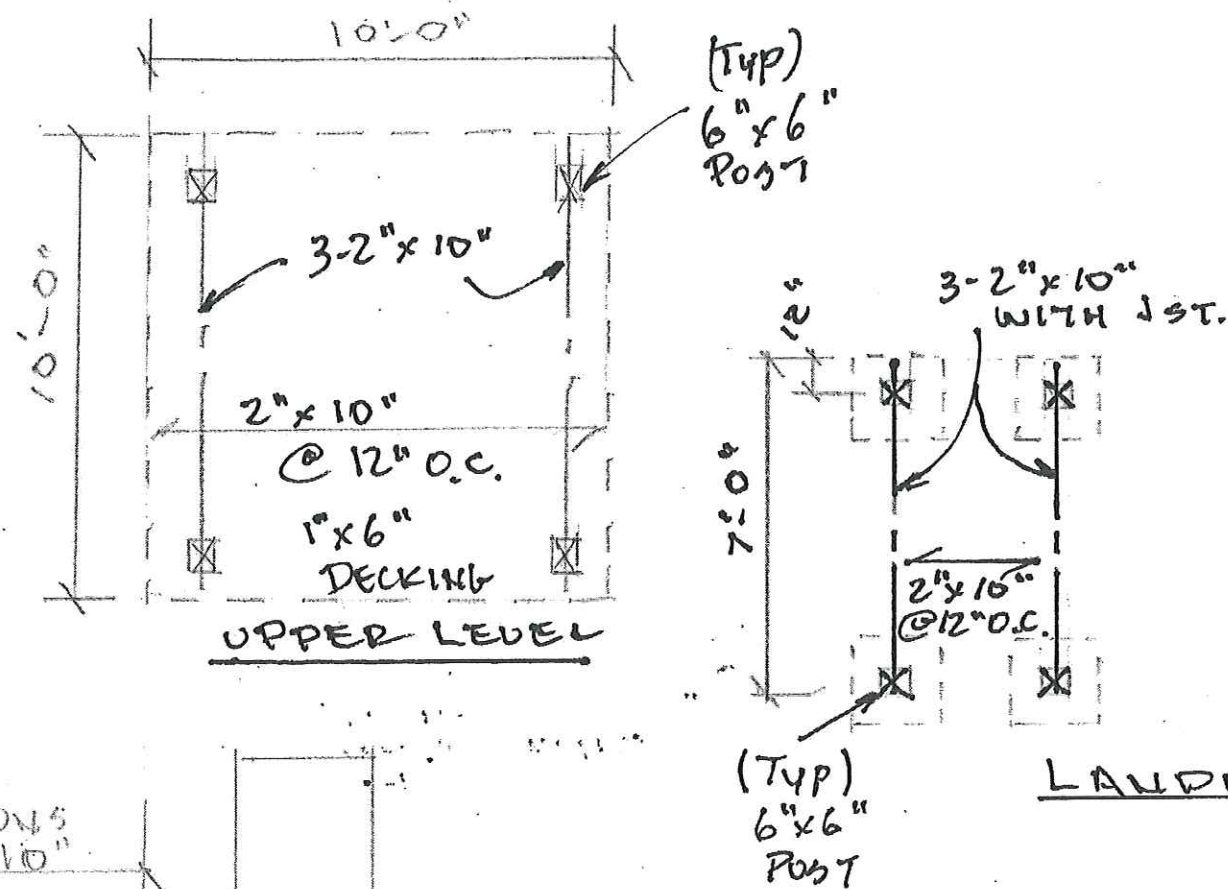 10'-0"
(TYP)
6"x6"
POST
10'-0"
3-2"x10"
2"x10"
@ 12" O.C.
1"x6"
DECKING
UPPER LEVEL
12"
3-2"x10"
WITH JST.
7'-0"
2"x10"
@12"O.C.
(TYP)
6"x6"
POST